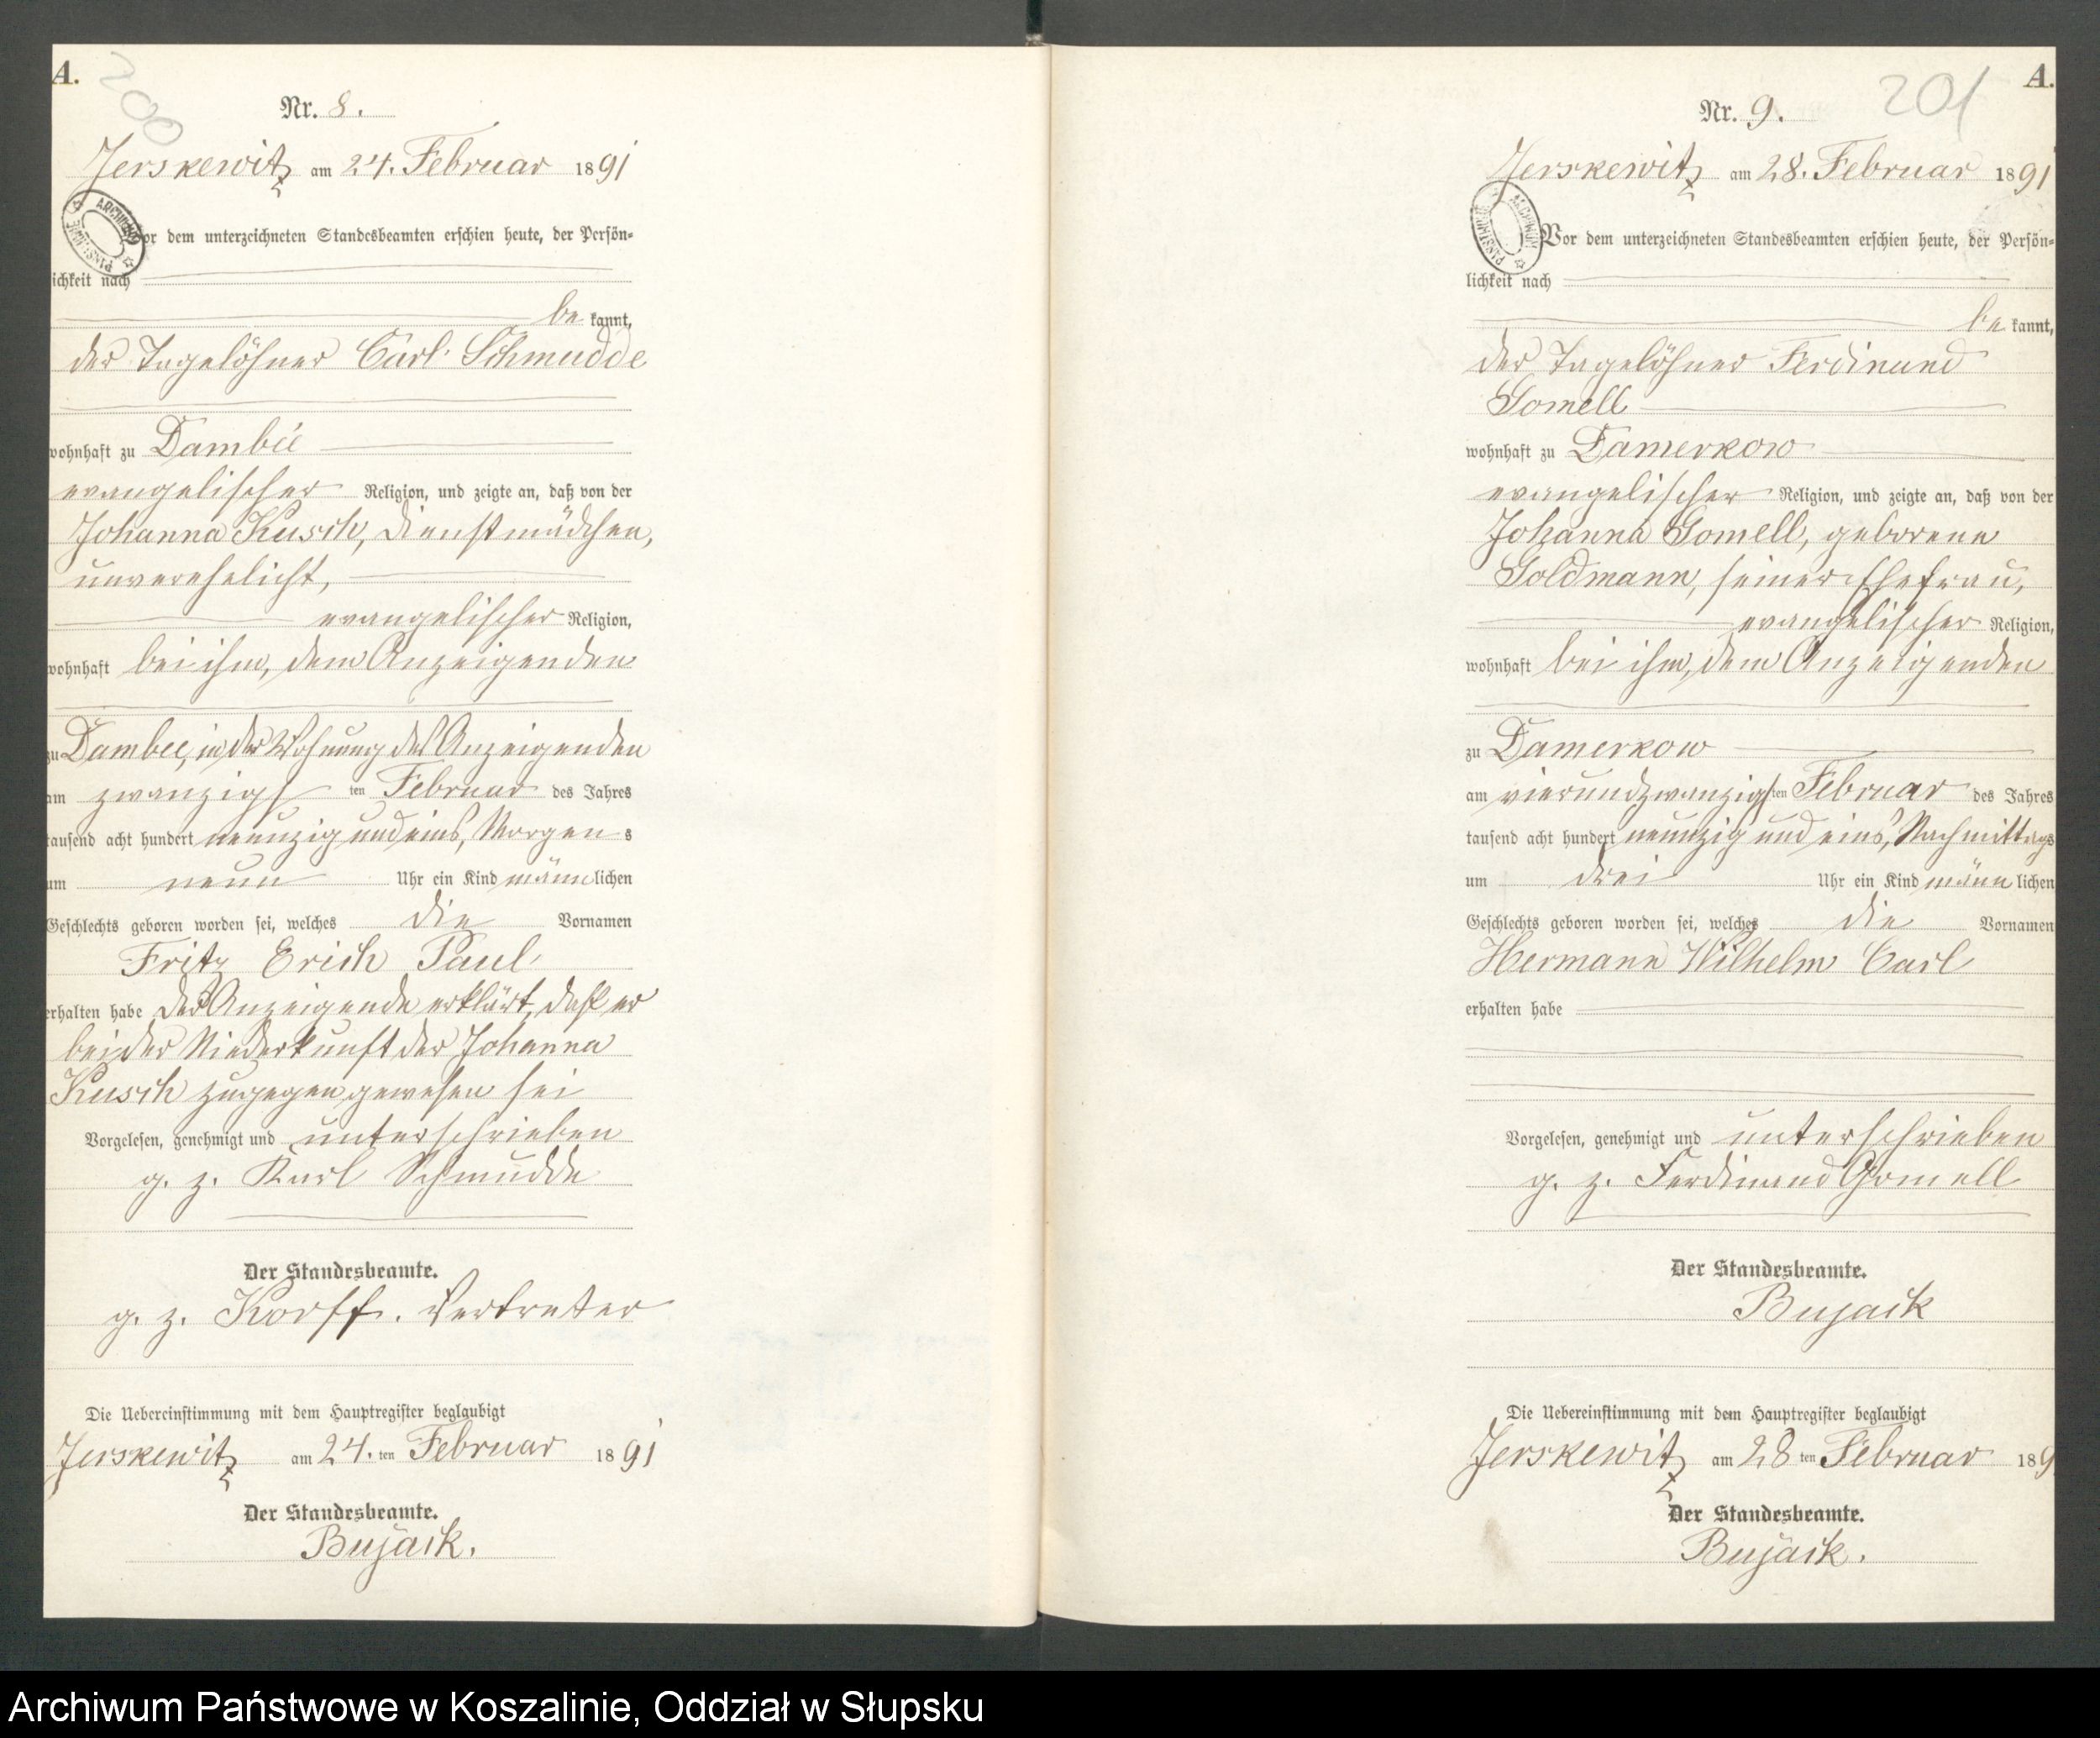 A.
200
Nr. 8.
Jerskewitz am 24. Februar 1891
Vor dem unterzeichneten Standesbeamten erschien heute, der Persön=
lichkeit nach
be kannt,
der Tagelöhner Carl Schmudde
wohnhaft zu Dambee
evangelischer Religion, und zeigte an, daß von der
Johanna Kusch, Dienstmädchen,
unverehelicht,
evangelischer Religion,
wohnhaft bei ihm, dem Anzeigenden
zu Dambee, in der Wohnung des Anzeigenden
am zwanzigsten Februar des Jahres
tausend acht hundert neunzig und eins, Morgens
um neun Uhr ein Kind männlichen
Geschlechts geboren worden sei, welches die Vornamen
Fritz Erich Paul
erhalten habe Der Anzeigende erklärt, daß er
bei der Niederkunft der Johanna
Kusch zugegen gewesen sei
Vorgelesen, genehmigt und unterschrieben
g. z. Karl Schmudde
Der Standesbeamte.
g. z. Korff. Vertreter
Die Uebereinstimmung mit dem Hauptregister beglaubigt
Jerskewitz am 24. ten Februar 1891
Der Standesbeamte.
Bujack.
A.
201
Nr. 9.
Jerskewitz am 28. Februar 1891
Vor dem unterzeichneten Standesbeamten erschien heute, der Persön=
lichkeit nach
be kannt,
der Tagelöhner Ferdinand
Gomell
wohnhaft zu Damerkow
evangelischer Religion, und zeigte an, daß von der
Johanna Gomell, geborene
Goldmann, seiner Ehefrau,
evangelischer Religion,
wohnhaft bei ihm, dem Anzeigenden
zu Damerkow
am vierundzwanzigsten Februar des Jahres
tausend acht hundert neunzig und eins, Nachmittags
um drei Uhr ein Kind männlichen
Geschlechts geboren worden sei, welches die Vornamen
Hermann Wilhelm Carl
erhalten habe
Vorgelesen, genehmigt und unterschrieben
g. z. Ferdinand Gomell
Der Standesbeamte.
Bujack
Die Uebereinstimmung mit dem Hauptregister beglaubigt
Jerskewitz am 28 ten Februar 189
Der Standesbeamte.
Bujack.
Archiwum Państwowe w Koszalinie, Oddział w Słupsku